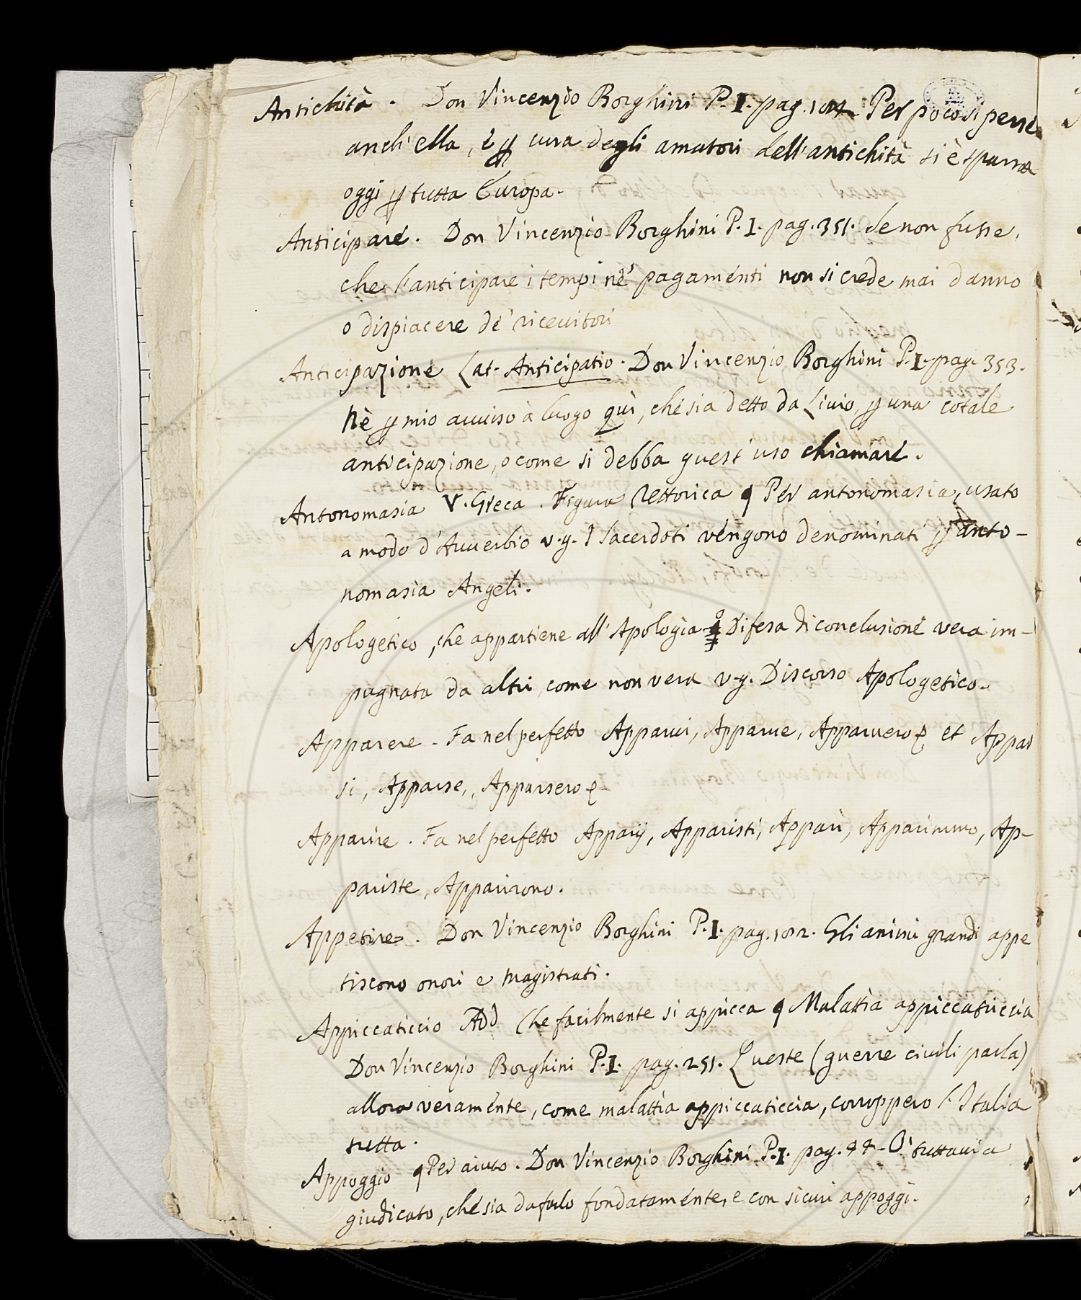 Antichità. Don Vincenzio Borghini P. I. pag. Per poco si perse
anch'ella, e p cura degli amatori dell'antichità si è sparsa
oggi p tutta Europa.
Anticipare. Don Vincenzio Borghini P. I. pag. 351. Se non fusse,
che l'anticipare i tempi nè pagamenti non si crede mai danno
o dispiacere de' ricevitori
Anticipazione Lat. Anticipatio. Don Vincenzio Borghini P. I. pag. 353.
Nè p mio avviso à luogo quì, che sia detto da Livio, p una cotale
anticipazione, o come si debba quest'uso chiamare.
Antonomasia V. Greca. Figura Rettorica ¶ Per antonomasia, usato
a modo d'Avverbio v.g. I Sacerdoti vengono denominati p anto-
nomasia Angeli.
Apologetico, che appartiene all'Apologia Difesa di conclusione vera im-
pugnata da altri come non vera v.g. Discorso Apologetico.
Apparere. Fa nel perfetto Apparvi, Apparve, Apparvero et Appar
si, Apparse, Apparsero
Apparire. Fa nel perfetto Apparij, Apparisti, Apparì, Apparimmo, Ap-
pariste, Apparirono.
Appetire. Don Vincenzio Borghini P. I. pag. Gli animi grandi appe
tiscono onori e magistrati.
Appiccaticcio Add Che facilmente si appicca ¶ Malattia appiccaticcia
Don Vincenzio Borghini P. I. pag. 251. Queste (guerre civili parla)
allora veramente, come malattia appiccaticcia, corroppero l'Italia
tutta.
Appoggio ¶ Per aiuto. Don Vincenzio Borghini P. I. pag. 44. O' tuttavia
giudicato, che sia da farlo fondatamente, e con sicuri appoggi.